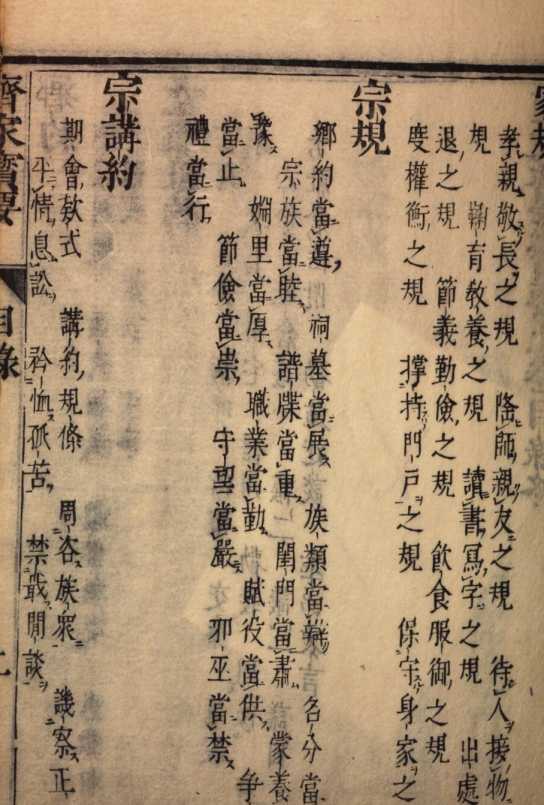 家規
孝親敬長之規 隆師親友之規 待人接物
規 鞠育教養之規 讀書寫字之規 出處
退之規 節義勤儉之規 飲食服御之規
度權衡之規 撐持門戶之規 保守身家之
宗規
鄉約當遵 祠墓當展 族類當辨 名分當
宗族當睦 譜牒當重 閨門當肅 蒙養
豫 婣里當厚 職業當勤 賦役當供 爭
當止 節儉當崇 守望當嚴 邪巫當禁
禮當行
宗講約
期會欵式 講約規條 周咨族衆 譏察正
平情息訟 矜恤孤苦 禁戢閒談
齊家寶要 目錄